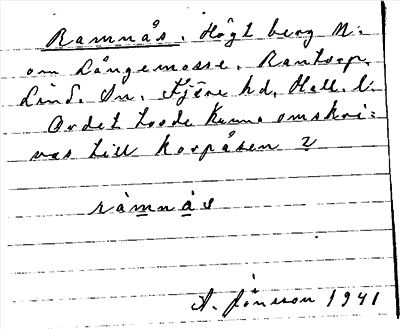 Ramnås. Högt berg N:
om Långemosse. Rantorp.
Lind. Sn. Fjäre hd. Hall. l.
Ordet torde kunna omskri=
vas till korpåsen ?
ràmnås
A. Jönsson 1941